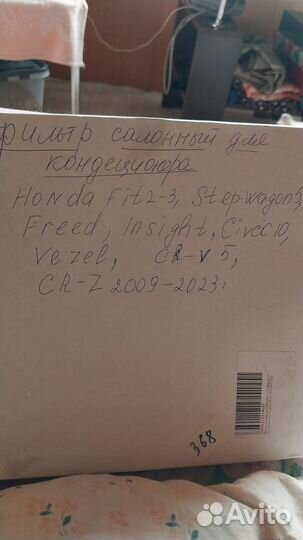 фильтр салонный для
кондеционера
Honda Fit2-3, Stepwagon5,
Freed, Insight, Civic10,
Vezel, CR-V 5,
CR-Z 2009-2023г
368
Avito